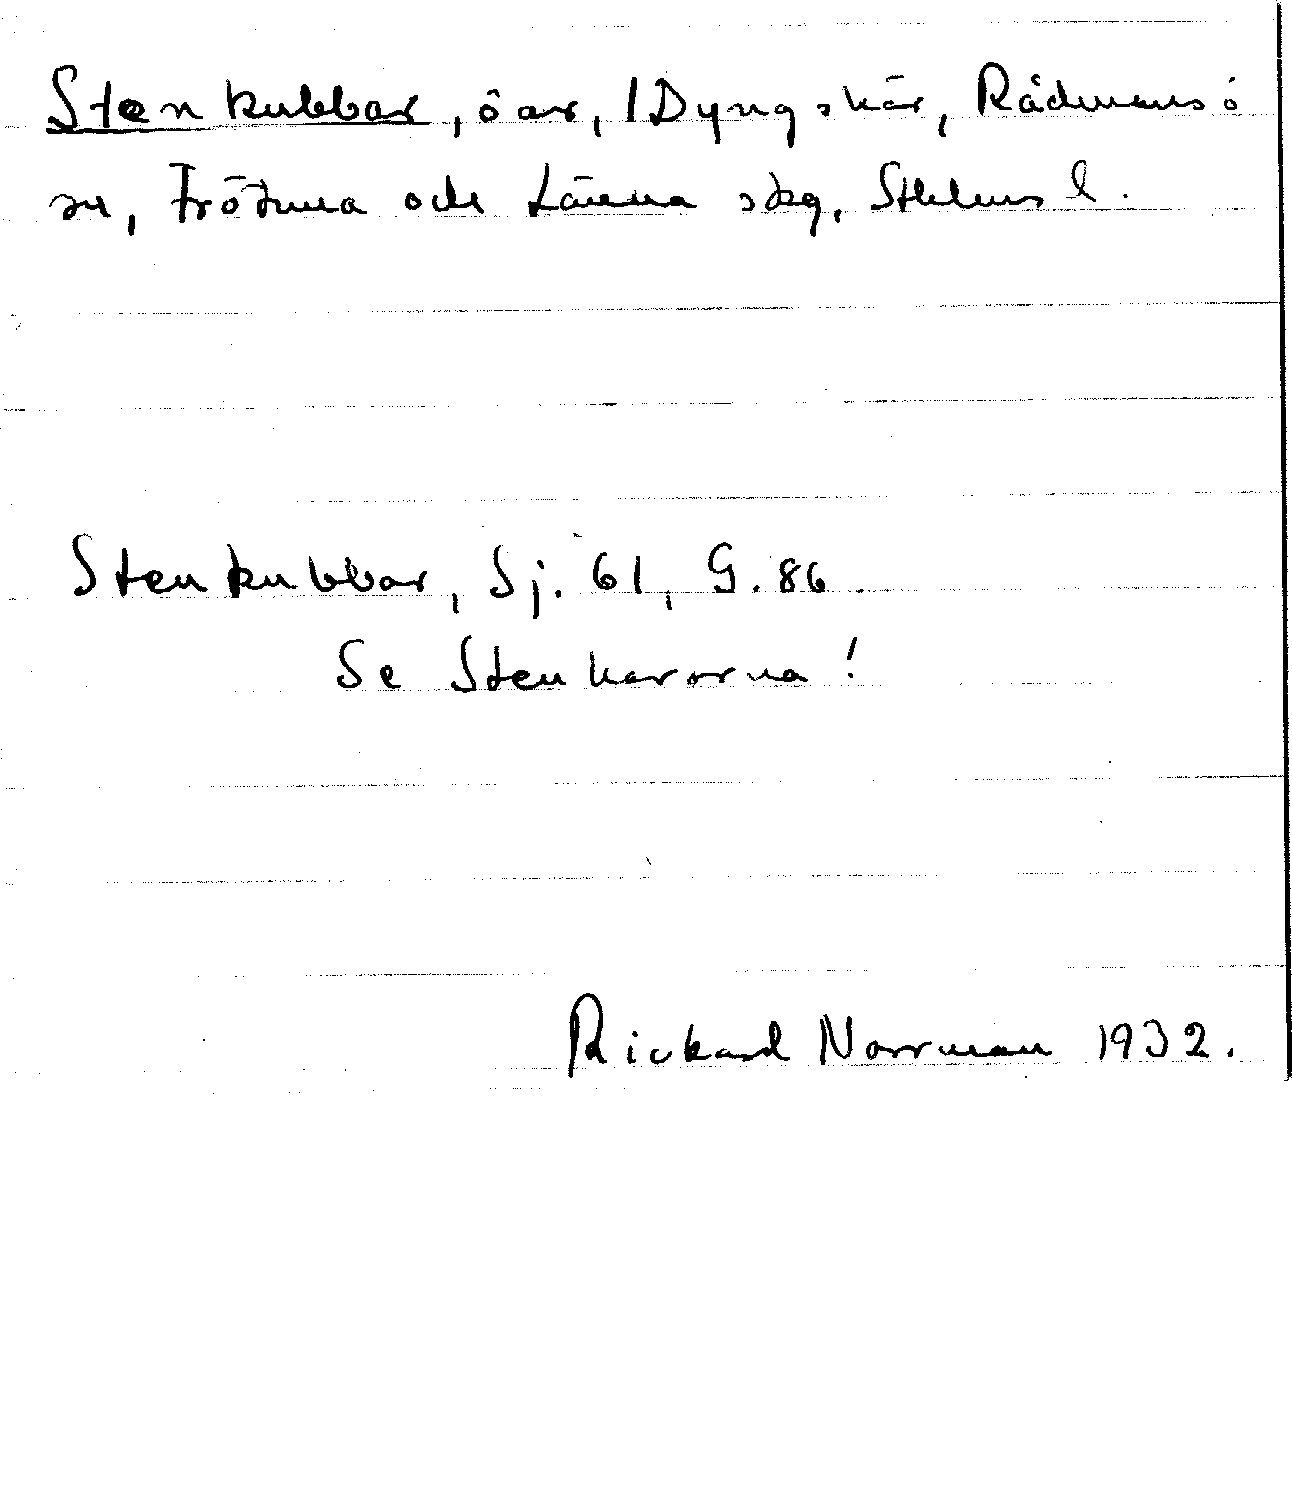 Stenkubbar, öar, /Dyngskär, Rådmansö
sn, Frötuna och Länna skg, Sthlms l.
Stenkubbar, Sj. 61, G. 86
Se Stenkarorna!
Rickard Norrman 1932.